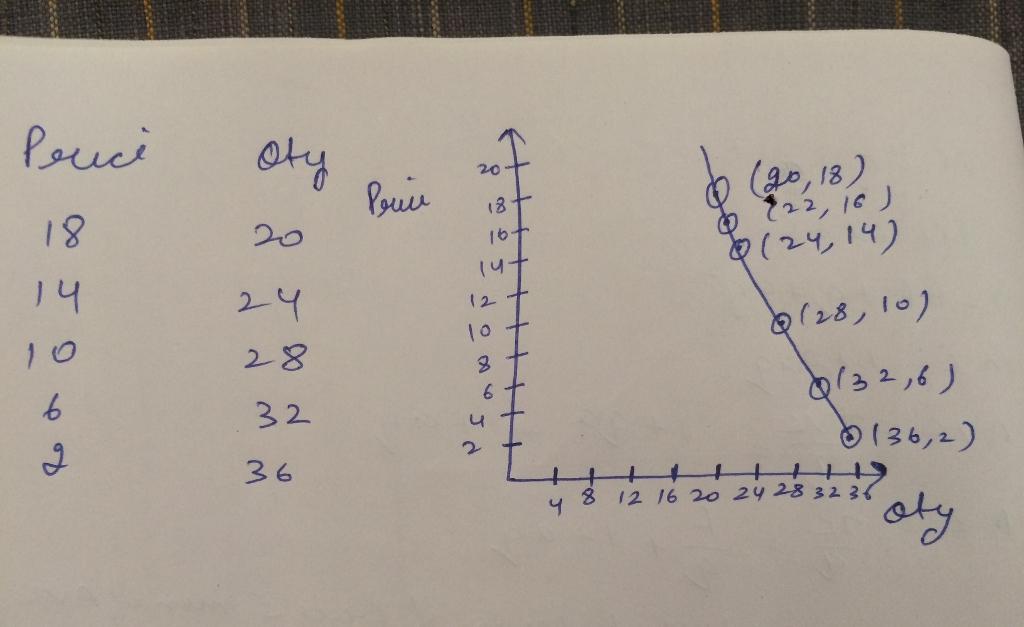 Price Qty
18 20
14 24
10 28
6 32
2 36
Price
20
18
16
14
12
10
8
6
4
2
4 8 12 16 20 24 28 32 36
Qty
(20, 18)
(22, 16)
(24, 14)
(28, 10)
(32, 6)
(36, 2)